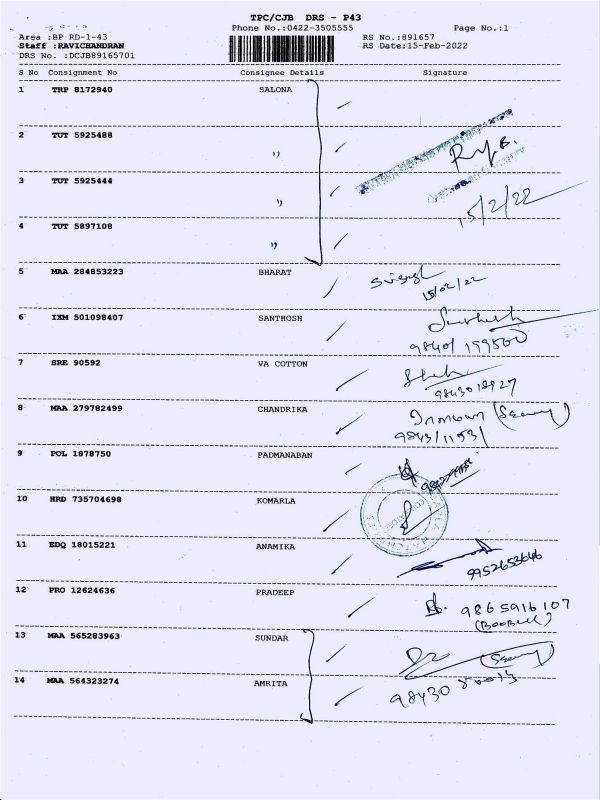 TPC/CJB DRS - P43
Phone No.:0422-3505555 Page No.:1
Area :BP RD-1-43 RS No.:891657
Staff :RAVICHANDRAN RS Date:15-Feb-2022
DRS No. :DCJB89165701
S No Consignment No Consignee Details Signature
1 TRP 8172940 SALONA
2 TUT 5925488 "
3 TUT 5925444 "
15/2/22
4 TUT 5897108 "
5 MAA 284853223 BHARAT
15/02/22
6 IXM 501098407 SANTHOSH
98401 199560
7 SRE 90592 VA COTTON
8 MAA 279782499 CHANDRIKA
98431 11531
9 POL 1878750 PADMANABAN
10 HRD 735704698 KOMARLA
11 EDQ 18015221 ANAMIKA
9952653646
12 PRO 12624636 PRADEEP
9865916107
13 MAA 565283963 SUNDAR
14 MAA 564323274 AMRITA
98430